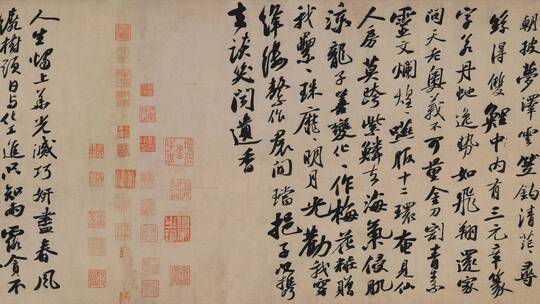 朝披夢澤雲笠釣清茫尋
絲得雙鯉中內有三元章篆
字若丹虵逸勢如飛翔還家
問天老奧義不可量金刀割青素
靈文爛煌煌嚥服十二環奄見仙
人房莫跨紫鱗去海氣侵肌
涼龍子善變化化作梅花粧贈
我纍纍珠靡靡明月光勸我穿
絳縷繫作裙間襠挹子以攜
去談笑聞遺香
人生燭上華光滅巧妍盡春風
繞樹頭日與化工進只知雨露貪不